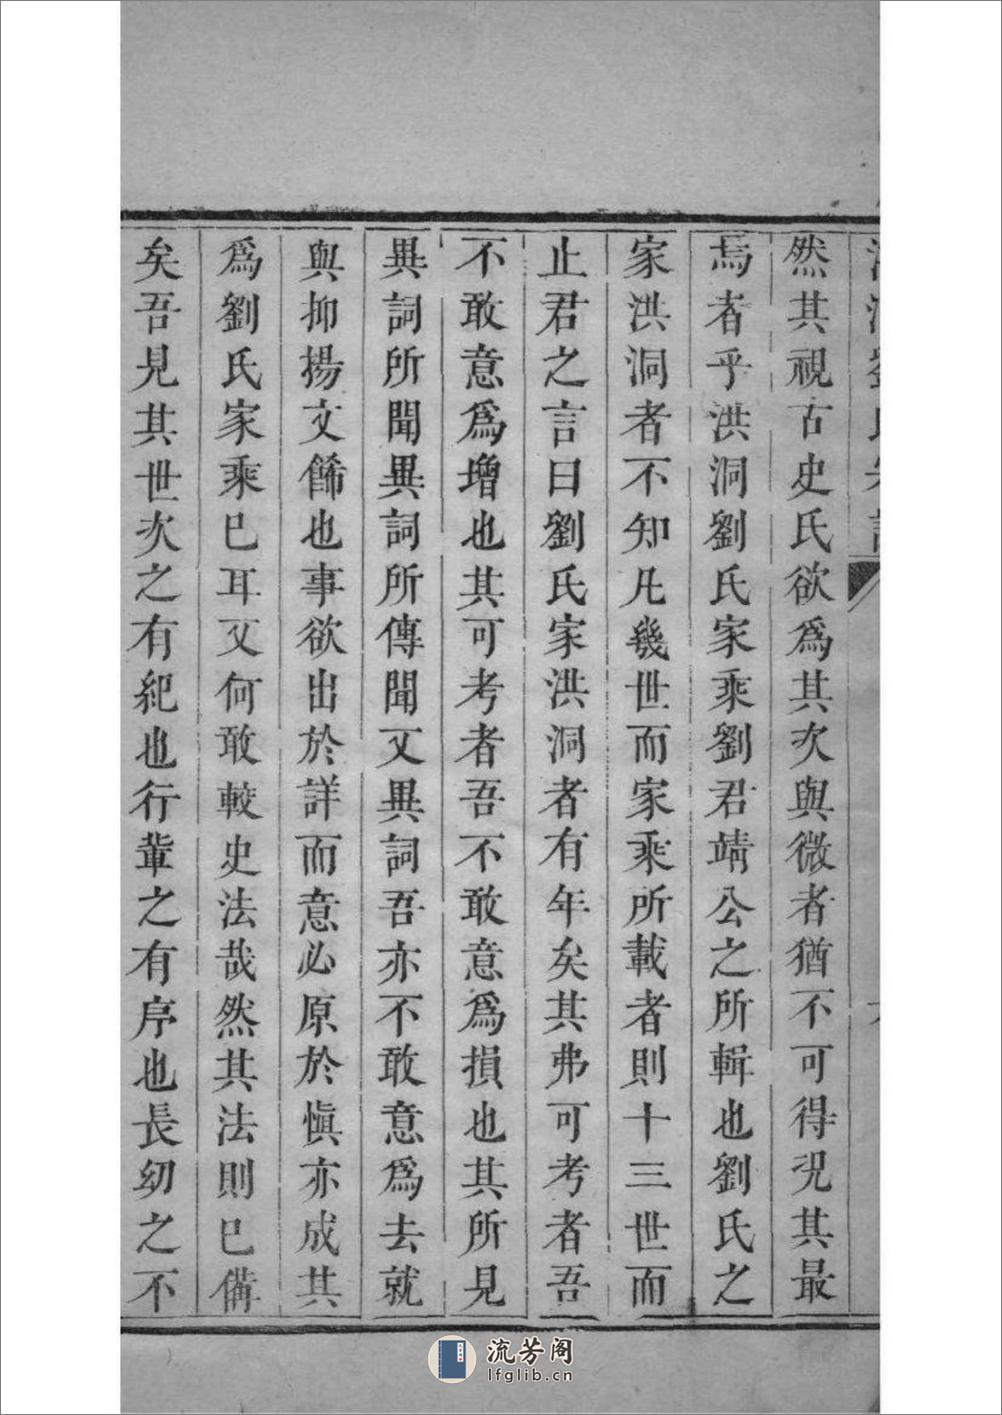 然其視古史氏欲爲其次與微者猶不可得况其最
焉者乎洪洞劉氏家乘劉君靖公之所輯也劉氏之
家洪洞者不知凡幾世而家乘所載者則十三世而
止君之言曰劉氏家洪洞者有年矣其弗可考者吾
不敢意爲增也其可考者吾不敢意爲損也其所見
異詞所聞異詞所傳聞又異詞吾亦不敢意爲去就
與抑揚文餙也事欲出於詳而意必原於愼亦成其
爲劉氏家乘巳耳又何敢較史法哉然其法則巳備
矣吾見其世次之有紀也行軰之有序也長幼之不
流芳阁
lfglib.cn